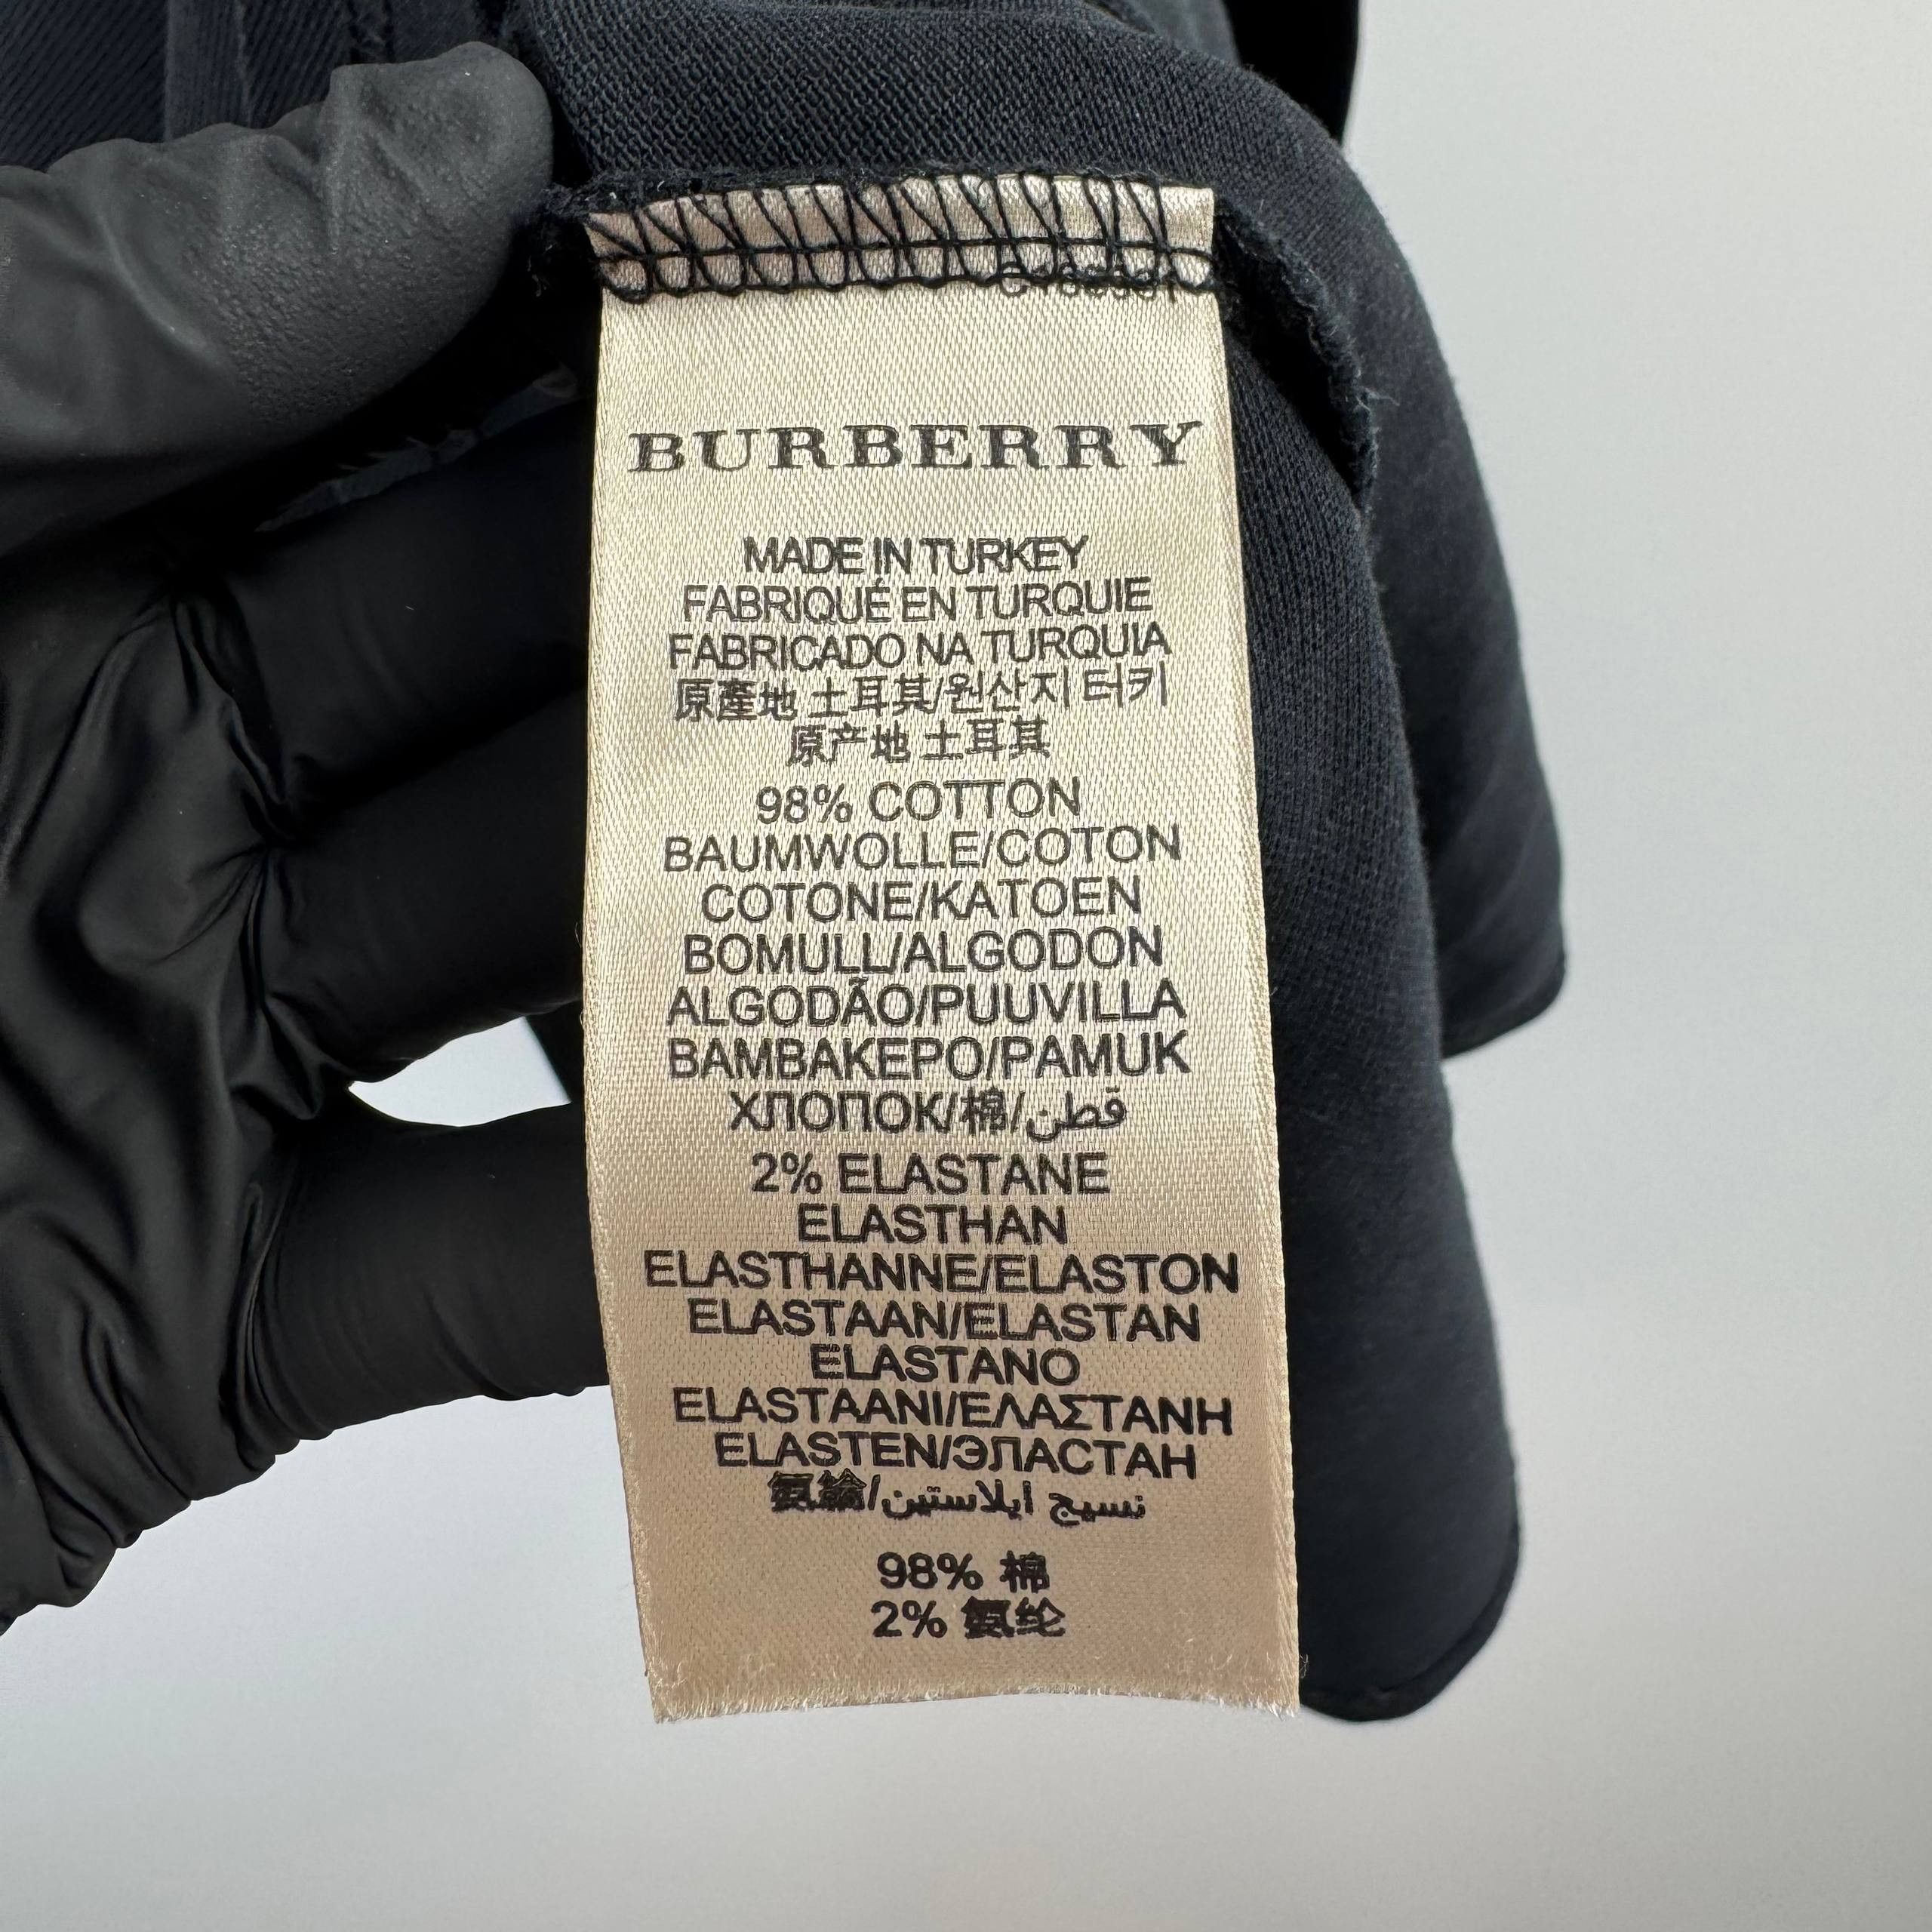 BURBERRY
MADE IN TURKEY
FABRIQUÉ EN TURQUIE
FABRICADO NA TURQUIA
原產地 土耳其/원산지 터키
原产地 土耳其
98% COTTON
BAUMWOLLE/COTON
COTONE/KATOEN
BOMULL/ALGODON
ALGODÃO/PUUVILLA
BAMBAKEPO/PAMUK
ХЛОПОК/棉/قطن
2% ELASTANE
ELASTHAN
ELASTHANNE/ELASTON
ELASTAAN/ELASTAN
ELASTANO
ELASTAANI/ΕΛΑΣΤΑΝΗ
ELASTEN/ЭЛАСТАН
氨綸/نسيج ايلاستين
98% 棉
2% 氨纶